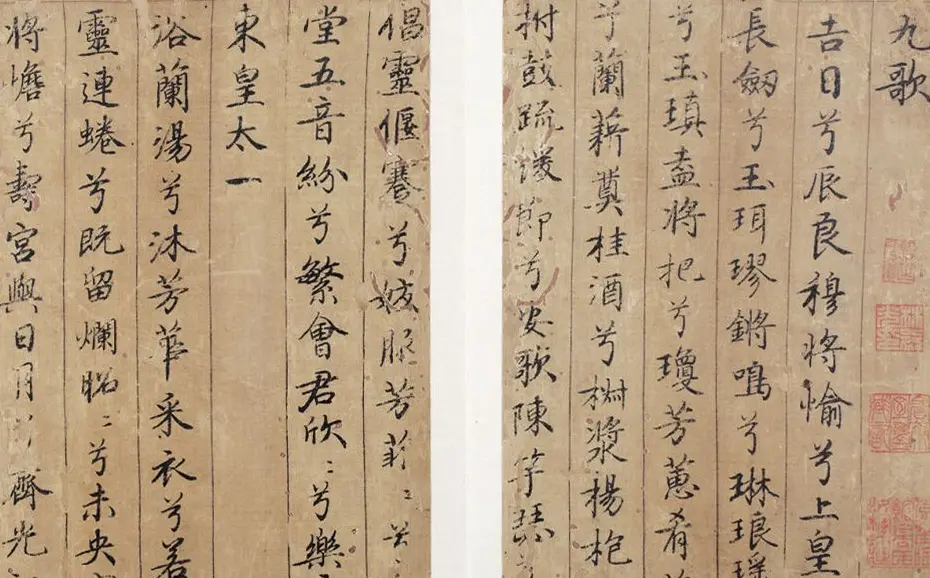 九歌
吉日兮辰良穆將愉兮上皇
長劔兮玉珥璆鏘鳴兮琳琅瑶
兮玉瑱盍將把兮瓊芳蕙肴
兮蘭藉奠桂酒兮椒漿楊枹
拊鼓疏緩節兮安歌陳竽瑟
倡靈偃蹇兮姣服芳菲〻兮
堂五音紛兮繁會君欣〻兮樂
東皇太一
浴蘭湯兮沐芳華采衣兮若
靈連蜷兮既留爛昭〻兮未央
將憺兮壽宮與日月兮齊光